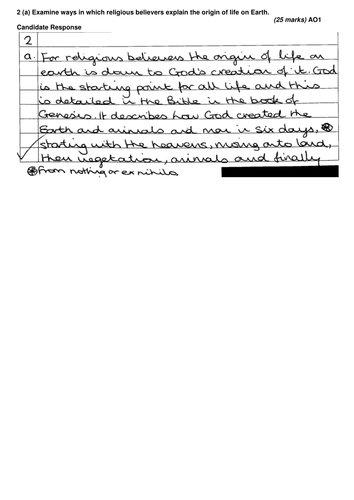 2 (a) Examine ways in which religious believers explain the origin of life on Earth.
(25 marks) AO1
Candidate Response
2
a. For religious believers the origin of life on
earth is down to God's creation of it. God
is the starting point for all life and this
is detailed in the Bible in the book of
Genesis. It describes how God created the
Earth and animals and man in six days, *
starting with the heavens, moving onto land,
then vegetation, animals and finally
* from nothing or ex nihilo